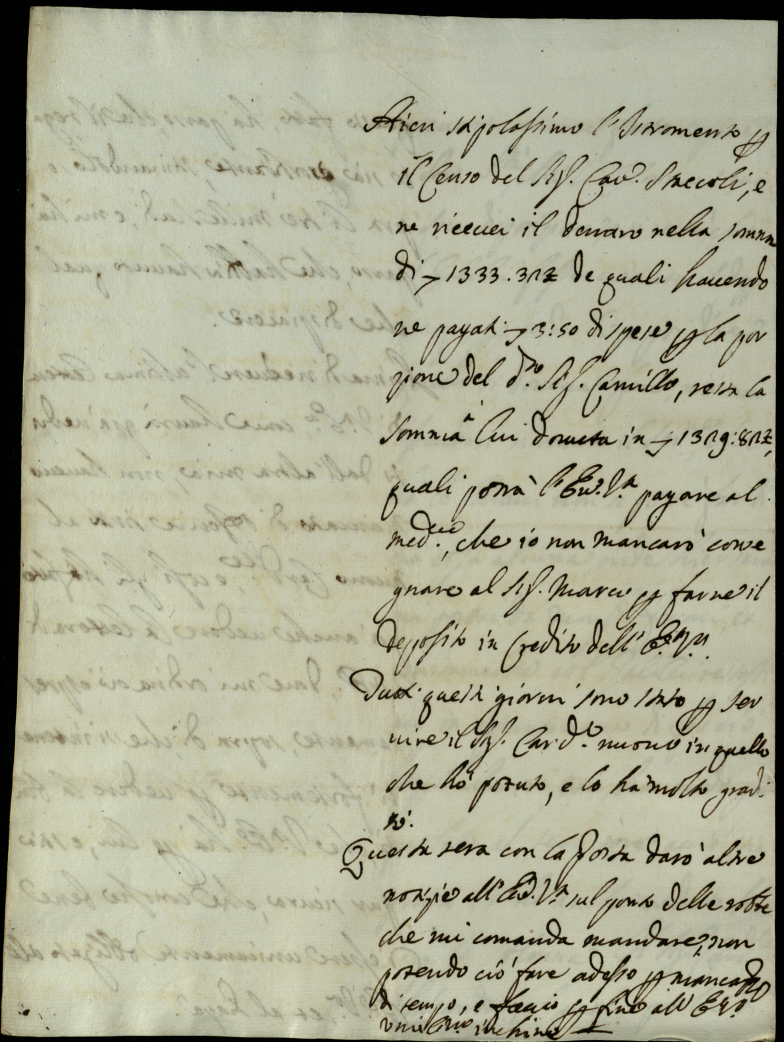 Hieri stipolassimo l'Istromento p
il Censo del Sig. Cav. Stecoli, e
ne riceuei il denaro nella somma
di 1333.32½ de quali hauendo
ne pagati 3:50 di spese p la por
zione del d.o Sig. Camillo, resta la
somma à lui douuta in 1329:82½,
quali potrà l'Em. V.ra pagare al
med.mo, che io non mancarò conse
gnare al Sig. Marco p farne il
deposito in Credito dell' E. V.
Tutti questi giorni sono stato p ser
uire il Sig. Card.e nuouo in quello
che hò potuto, e lo ha molto gradi
to.
Questa sera con la posta darò altre
notizie all' Em. V.ra sul ponto delle robbe
che mi comanda mandare, non
potendo ciò fare adesso p mancanza
di tempo, e faccio p fine all' E. V.
umil.mo inchino